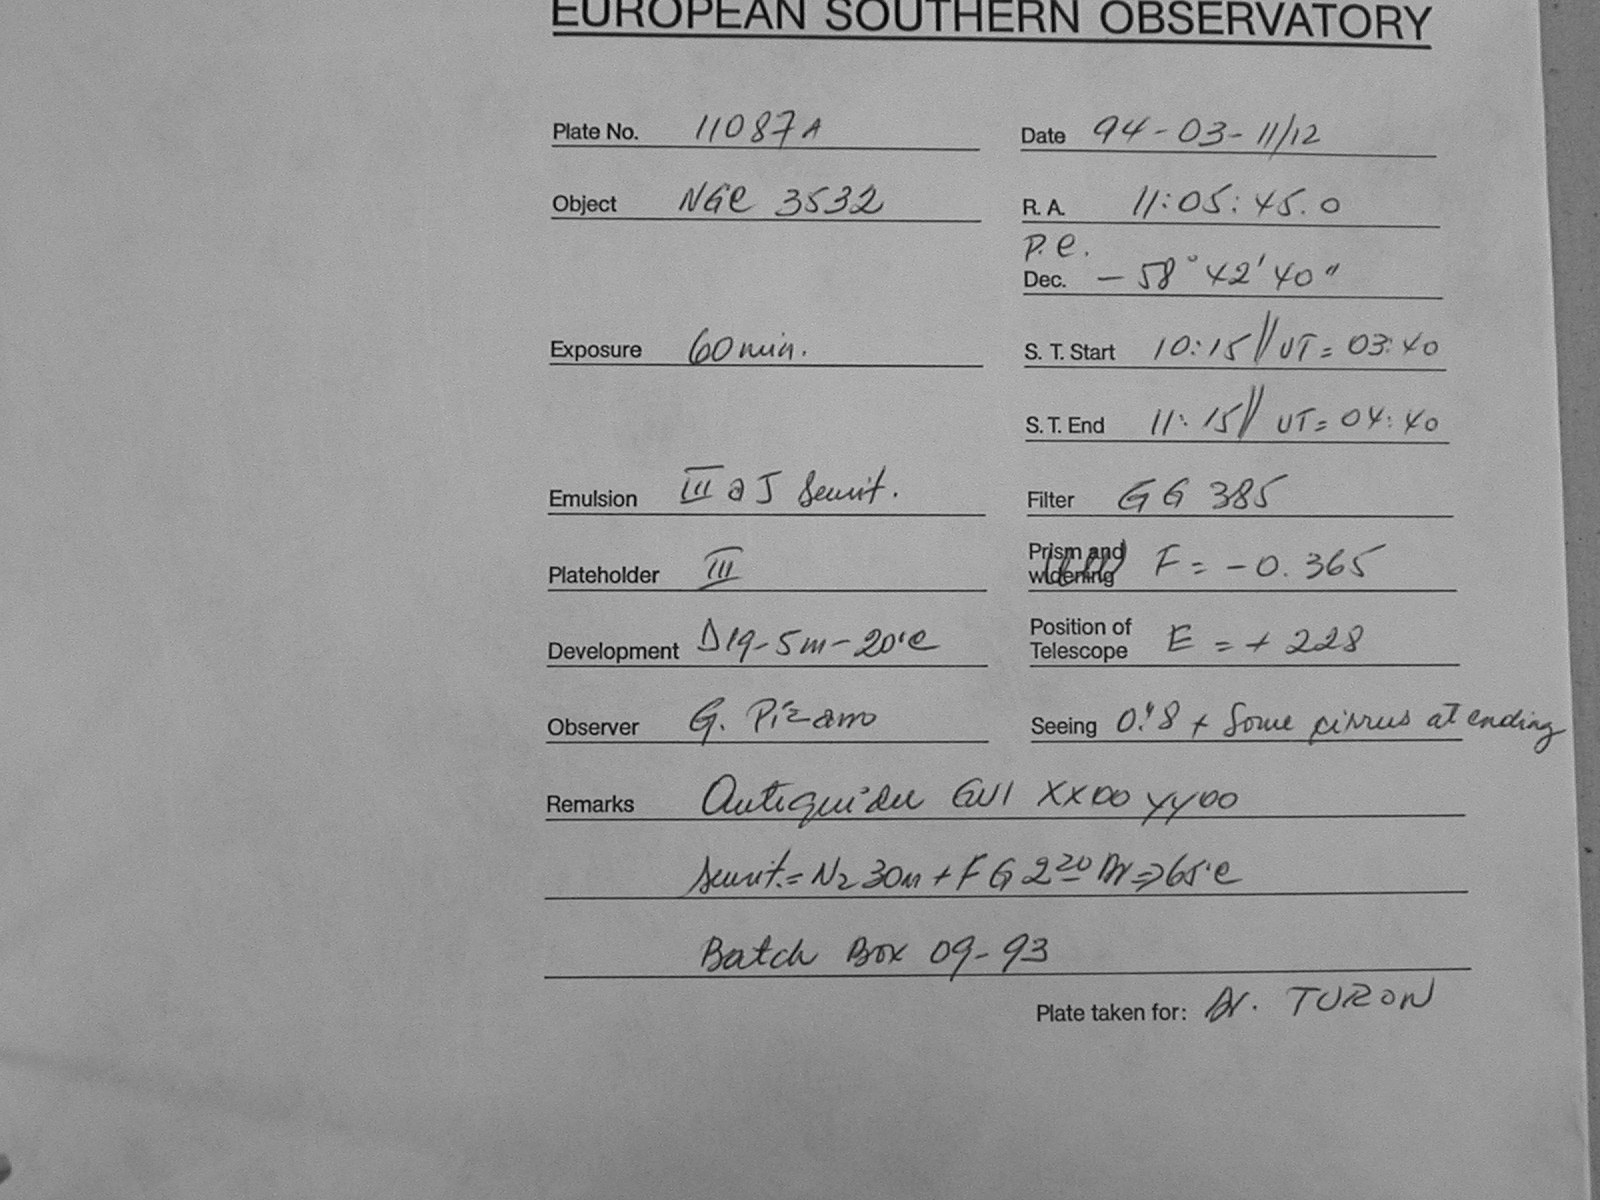 EUROPEAN SOUTHERN OBSERVATORY
Plate No. 11087A
Date 94-03-11/12
Object NGC 3532
R. A. 11:05:45.0
P.e.
Dec. -58°42'40"
Exposure 60 min.
S. T. Start 10:15 // UT = 03:40
S. T. End 11:15 // UT = 04:40
Emulsion III a J Sensit.
Filter GG 385
Plateholder III
Prism and widening F = -0.365
Development D19-5m-20°C
Position of Telescope E = + 228
Observer G. Pizarro
Seeing 0".8 + Some cirrus at ending
Remarks GUI XX00 YY00
Sensit. = N2 30m + F G 2 20 ⇒ 65°C
Batch Box 09-93
Plate taken for: Dr. TURON